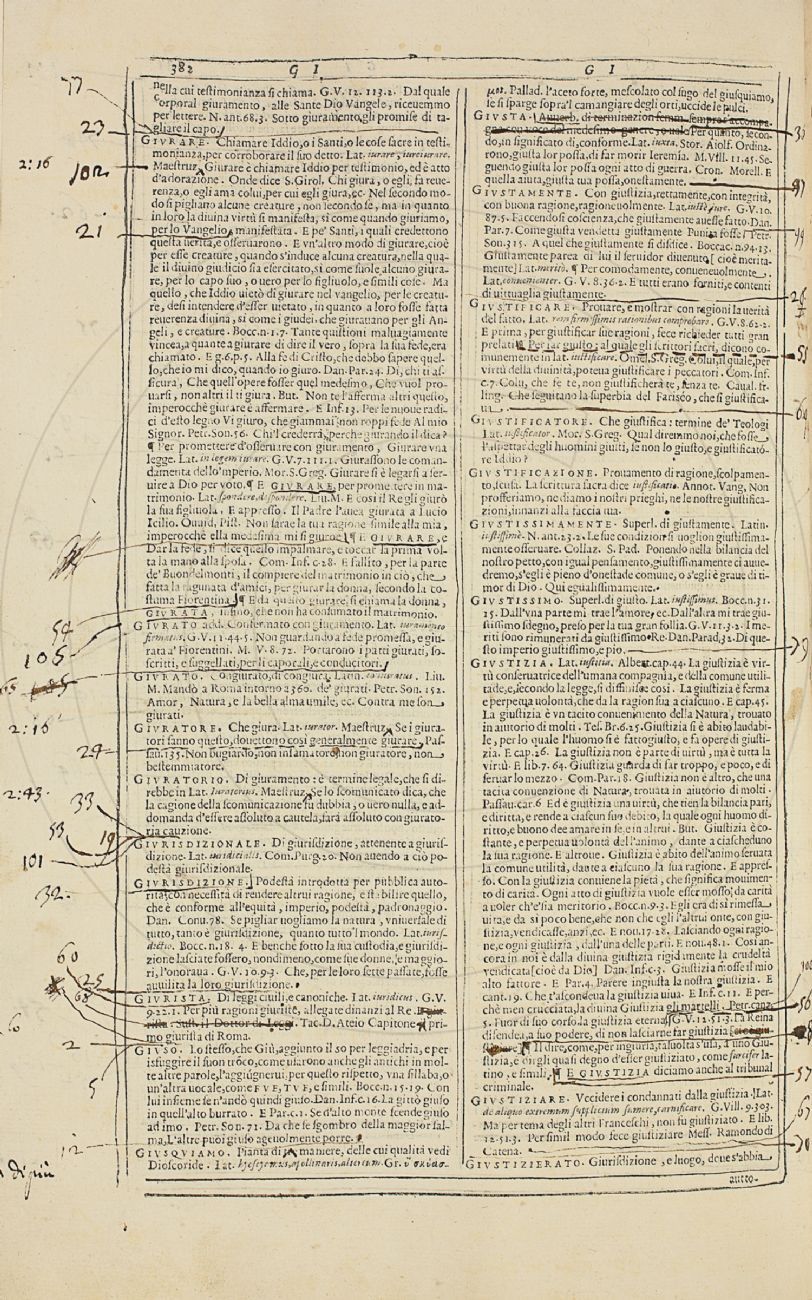 382 G I
G I
nella cui testimonianza si chiama. G.V. 12. 113.2. Dal quale
corporal giuramento, alle Sante Dio Vangele, riceuemmo
per lettere. N. ant. 68, 3. Sotto giuramento, gli promise di ta-
gliare il capo.
GIVRARE. Chiamare Iddio, o i Santi, o le cose sacre in testi-
monianza, per corroborare il suo detto. Lat. iurare, iureiurare.
Maestruz. Giurare è chiamare Iddio per testimonio, ed è atto
d'adorazione. Onde dice S. Girol. Chi giura, o egli fa reue-
renza, o egli ama colui, per cui egli giura, ec. Nel secondo mo-
do si pigliano alcune creature, non secondo se, ma in quanto
in loro la diuina virtù si manifesta, si come quando giuriamo,
per lo Vangelio, manifestata. E pe' Santi, i quali credettono
questa uerità, e osseruarono. E vn'altro modo di giurare, cioè
per esse creature, quando s'induce alcuna creatura, nella qua-
le il diuino giudicio sia esercitato, si come suole alcuno giura-
re, per lo capo suo, o uero per lo figliuolo, e simili cose. Ma
quello, che Iddio uietò di giurare nel vangelio, per le creatu-
re, desi intendere d'esser uietato, in quanto a loro fosse fatta
reuerenza diuina, si come i giudei, che giurauano per gli An-
geli, e creature. Bocc. n. 1. 7. Tante quistioni maluagiamente
vincea, a quante a giurare di dire il vero, sopra la sua fede, era
chiamato. E g. 6. p. 5. Alla fe di Cristo, che debbo sapere quel-
lo, che io mi dico, quando io giuro. Dan. Par. 24. Dì, chi t'as-
sicura, Che quell'opere fosser quel medesimo, Che vuol pro-
uarsi, non altri il ti giura. But. Non te l'afferma altri questo,
imperocchè giurare è affermare. E Inf. 13. Per le nuoue radi-
ci d'esto legno Vi giuro, che giammai non roppi fede Al mio
Signor. Petr. Son. 56. Chi'l crederrà, perche giurando il dica?
¶ Per promettere d'osseruare con giuramento, Giurare vna
legge. Lat. in legem iurare. G.V. 7. 111. 1. Giurassono le coman-
damenta dello'mperio. Mor. S. Greg. Giurare si è legarsi a ser-
uire a Dio per voto. ¶ E GIVRARE, per promettere in ma-
trimonio. Lat. spondere, despondere. Liu. M. E così il Re gli giurò
la sua figliuola. E appresso. Il Padre l'auea giurata a Lucio
Icilio. Ouuid. Pist. Non sarae la tua ragione simile alla mia,
imperocchè ella medesima mi si giuroe. ¶ E GIVRARE, e
Dar la fede, si dice quello impalmare, e toccar la prima vol-
ta la mano alla sposa. Com. Inf. c. 28. E fallito, per la parte
de' Buondelmonti, il compiere del matrimonio in ciò, che
fatta la ragunata d'amici, per giurar la donna, secondo la co-
stuma Fiorentina. ¶ E da questo giurare, si chiama la donna,
GIVRATA, infino, che non ha consumato il matrimonio.
GIVRATO add. Confermato con giuramento. Lat. iuramento
firmatus. G.V. 11. 44. 5. Non guardando a fede promessa, e giu-
rata a' Fiorentini. M. V. 8. 72. Portarono i patti giurati, so-
scritti, e suggellati, per li caporali, e conducitori.
GIVRATO. Congiurato, di congiura. Latin. coniuratus. Liu.
M. Mandò a Roma intorno a 360. de' giurati. Petr. Son. 152.
Amor, Natura, e la bella alma umile, ec. Contra me son
giurati.
GIVRATORE. Che giura. Lat. iurator. Maestruz. Se i giura-
tori fanno questo, douettono così generalmente giurare. Pas-
sau. 135. Non bugiardo, non infamatore, non giuratore, non
bestemmiatore.
GIVRATORIO. Di giuramento: è termine legale, che si di-
rebbe in Lat. Iuratorius. Maestruz. Se lo scomunicato dica, che
la cagione della scomunicazione fu dubbia, o uero nulla, e ad-
domanda d'essere assoluto a cautela, sarà assoluto con giurato-
ria cauzione.
GIVRISDIZIONALE. Di giurisdizione, attenente a giuris-
dizione. Lat. iuridicialis. Com. Purg. 20. Non auendo a ciò po-
destà giurisdizionale.
GIVRISDIZIONE. Podestà introdotta per pubblica auto-
rità, con necessità di rendere altrui ragione, e stabilire quello,
che è conforme all'equità, imperio, podestà, padronaggio.
Dan. Conu. 78. Se pigliar uogliamo la natura, vniuersale di
tutto, tanto è giurisdizione, quanto tutto'l mondo. Lat. iuris-
dictio. Bocc. n. 18. 4. E benchè sotto la sua custodia, e giurisdi-
zione lasciate fossero, nondimeno, come sue donne, e maggio-
ri, l'onoraua. G.V. 10. 9. 3. Che, per le loro sette passate, fosse
auuilita la loro giurisdizione.
GIVRISTA. Di leggi ciuili, e canoniche. Lat. iuridicus. G.V.
9. 22. 1. Per più ragioni giuriste, allegate dinanzi al Re.
Sust. il Dottor di Leggi. Tac. D. Ateio Capitone pri-
mo giurista di Roma.
GIVSO. Lo stesso, che Giù, aggiunto il so per leggiadria, e per
isfuggire il suon tronco, come usarono anche gli antichi in mol-
te altre parole, l'aggiugnerui, per questo rispetto, vna sillaba, o
un'altra uocale, come FVE, TVE, e simili. Bocc. n. 15. 19. Con
lui insieme se n'andò quindi giuso. Dan. Inf. c. 16. La gittò giuso
in quell'alto burrato. E Par. c. 1. Se d'alto monte scende giuso
ad imo. Petr. Son. 71. Da che se sgombro della maggior sal-
ma, L'altre puoi giuso ageuolmente porre.
GIVSQVIAMO. Pianta di maniere, delle cui qualità vedi
Dioscoride. Lat. hyoscyamus, apollinaris, altercum. Gr. ὑοσκύα-
μος. Pallad. l'aceto forte, mescolato col sugo del giusquiamo,
se si sparge sopra'l camangiare degli orti, uccide le pulci.
GIVSTA. Auuerb. di terminazion femm. sempre accompa-
gna con uoce del medesimo genere, o solo Per quanto, secon-
do, in significato di, conforme. Lat. iuxta. Stor. Aiolf. Ordina-
rono, giusta lor possa, di far morir Ieremia. M. Vill. 11. 45. Se-
guendo giusta lor possa ogni atto di guerra. Cron. Morell. E
quella aiuta, giusta tua possa, onestamente.
GIVSTAMENTE. Con giustizia, rettamente, con integrità,
con buona ragione, ragioneuolmente. Lat. iuste, iure. G.V. 10.
87. 5. Faccendosi coscienza, che giustamente auesse fatto. Dan.
Par. 7. Come giusta vendetta giustamente Punita fosse. Petr.
Son. 315. A quel che giustamente si disdice. Bocc. n. 94. 13.
Giustamente parea di lui il seruidor diuenuto [cioè merita-
mente] Lat. meritò. ¶ Per comodamente, conueneuolmente.
Lat. conuenienter. G. V. 8. 36. 2. E tutti erano forniti, e contenti
di uittuaglia giustamente.
GIVSTIFICARE. Prouare, e mostrar con ragioni la uerità
del fatto. Lat. rem firmissimis rationibus comprobare. G.V. 8. 62. 2.
E prima, per giustificar sue ragioni, fece richieder tutti gran
prelati. ¶ Per far giusto: al quale gli scrittori sacri, dicono co-
munemente in lat. iustificare. Omel. S. Greg. Colui, il quale, per
virtù della diuinità, poteua giustificare i peccatori. Com. Inf.
c. 7. Colui, che fe te, non giustificherà te, senza te. Caual. fr.
ling. Che seguitano la superbia del Fariseo, che si giustifica-
ua.
GIVSTIFICATORE. Che giustifica: termine de' Teologi
Lat. iustificator. Mor. S. Greg. Qual diremmo noi, che fosse
l'aspettar degli huomini giusti, se non lo giusto, e giustificató-
re Iddio?
GIVSTIFICAZIONE. Prouamento di ragione, scolpamen-
to, scusa. La scrittura sacra dice iustificatio. Annot. Vang. Non
profferiamo, ne diamo i nostri prieghi, ne le nostre giustifica-
zioni, innanzi alla faccia tua.
GIVSTISSIMAMENTE. Superl. di giustamente. Latin.
iustissimè. N. ant. 23. 2. Le sue condizion si uoglion giustissima-
mente osseruare. Collaz. S. Pad. Ponendo nella bilancia del
nostro petto, con igual pensamento, giustissimamente ci auue-
dremo, s'egli è pieno d'onestade comune, o s'egli è graue di ti-
mor di Dio. Qui egualissimamente.
GIVSTISSIMO. Superl. di giusto. Lat. iustissimus. Bocc. n. 31.
15. Dall'vna parte mi trae l'amore, ec. Dall'altra mi trae giu-
stissimo sdegno, preso per la tua gran follia. G.V. 11. 3. 2. I me-
riti sono rimunerati da giustissimo Re. Dan. Parad. 32. Di que-
sto imperio giustissimo, e pio.
GIVSTIZIA. Lat. iustitia. Albert. cap. 44. La giustizia è vir-
tù conseruatrice dell'umana compagnia, e della comune utili-
tade, e, secondo la legge, si diffinisce così. La giustizia è ferma
e perpetua uolontà, che dà la ragion sua a ciascuno. E cap. 45.
La giustizia è vn tacito conuenimento della Natura, trouato
in aiutorio di molti. Tes. Br. 6. 25. Giustizia si è abito laudabi-
le, per lo quale l'huomo si è fatto giusto, e fa opere di giusti-
zia. E cap. 26. La giustizia non è parte di uirtù, ma è tutta la
virtù. E lib. 7. 64. Giustizia guarda di far troppo, e poco, e di
seruar lo mezzo. Com. Par. 18. Giustizia non è altro, che una
tacita conuenzione di Natura, trouata in aiutorio di molti.
Passau. car. 6 Ed è giustizia una uirtù, che tien la bilancia pari,
e diritta, e rende a ciascun suo debito, la quale ogni huomo di-
ritto, e buono dee amare in se, e in altrui. But. Giustizia è co-
stante, e perpetua uolontà dell'animo, dante a ciascheduno
la sua ragione. E altroue. Giustizia è abito dell'animo seruata
la comune utilità, dante a ciascuno la sua ragione. E appres-
so. Con la giustizia conuiene la pietà, che significa mouimen-
to di carità. Ogni atto di giustizia vuole esser mosso da carità
a uoler ch'e' sia meritorio. Bocc. n. 9. 3. Egli era di sì rimessa
uita, e da sì poco bene, che non che egli l'altrui onte, con giu-
stizia, vendicasse, anzi, ec. E nou. 17. 28. Lasciando ogni ragio-
ne, e ogni giustizia, dall'una delle parti. E nou. 48. 1. Così an-
cora in noi è dalla diuina giustizia rigidamente la crudeltà
vendicata [cioè da Dio] Dan. Inf. c. 3. Giustizia mosse il mio
alto fattore. E Par. 4. Parere ingiusta la nostra giustizia. E
cant. 19. Che t'ascondeua la giustizia uiua. E Inf. c. 11. E per-
chè men crucciata, la diuina Giustizia gli martelli. Petr. canz.
5. Fuor di suo corso la giustizia eterna. G.V. 12. 51. 3. La Reina
difendea, a suo podere, di non lasciarne far giustizia
¶ Il dire, come, per ingiuria, talúolta s'usa, a uno Giu-
stizia, è un di quasi degno d'esser giustiziato, come furcifer la-
tino, e simili. ¶ E GIVSTIZIA diciamo anche al tribunal
criminale.
GIVSTIZIARE. Vccidere i condannati dalla giustizia. Lat.
de aliquo extremum supplicium sumere, carnificare. G. Vill. 9. 303.
Ma per tema degli altri Franceschi, non fu giustiziato. E lib.
12. 51. 3. Per simil modo fece giustiziare Mess. Ramondo di
Catena.
GIVSTIZIERATO. Giurisdizione, e luogo, doue s'abbia
autto-
77
23
2:16
102
21
54
105
2:16
29
2:43
33
53
19
101
32
60
25
68
2
5
12
di più
26
69
56
57